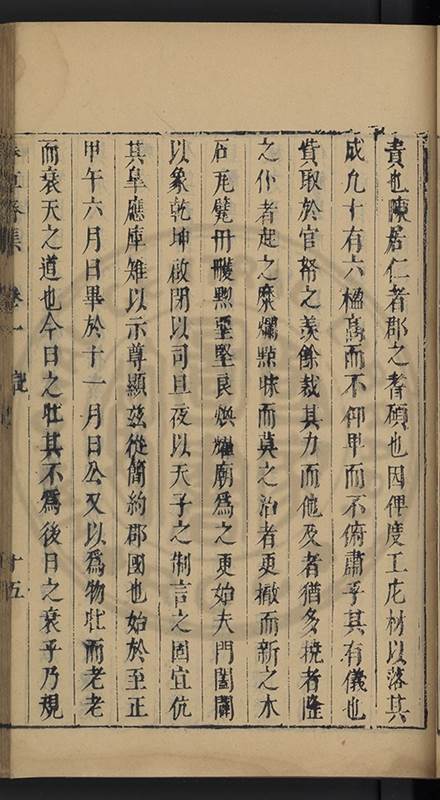 責也陳居仁者郡之耆碩也因俾度工庀材以落其
成凡十有六楹高而不仰卑而不俯肅乎其有儀也
貲取於官帑之羡餘裁其力而他及者猶多橈者隆
之仆者起之糜爛黯昧而莫之治者更撤而新之木
石瓦甓丹雘黝堊堅良煥耀廟爲之更始夫門闔闢
以象乾坤啟閉以司旦夜以天子之制言之固宜伉
其臯應庫雉以示尊顯兹從簡約郡國也始於至正
甲午六月日畢於十一月日公又以爲物壯而老老
而衰天之道也今日之壯其不爲後日之衰乎乃規
集 卷一 記 十五